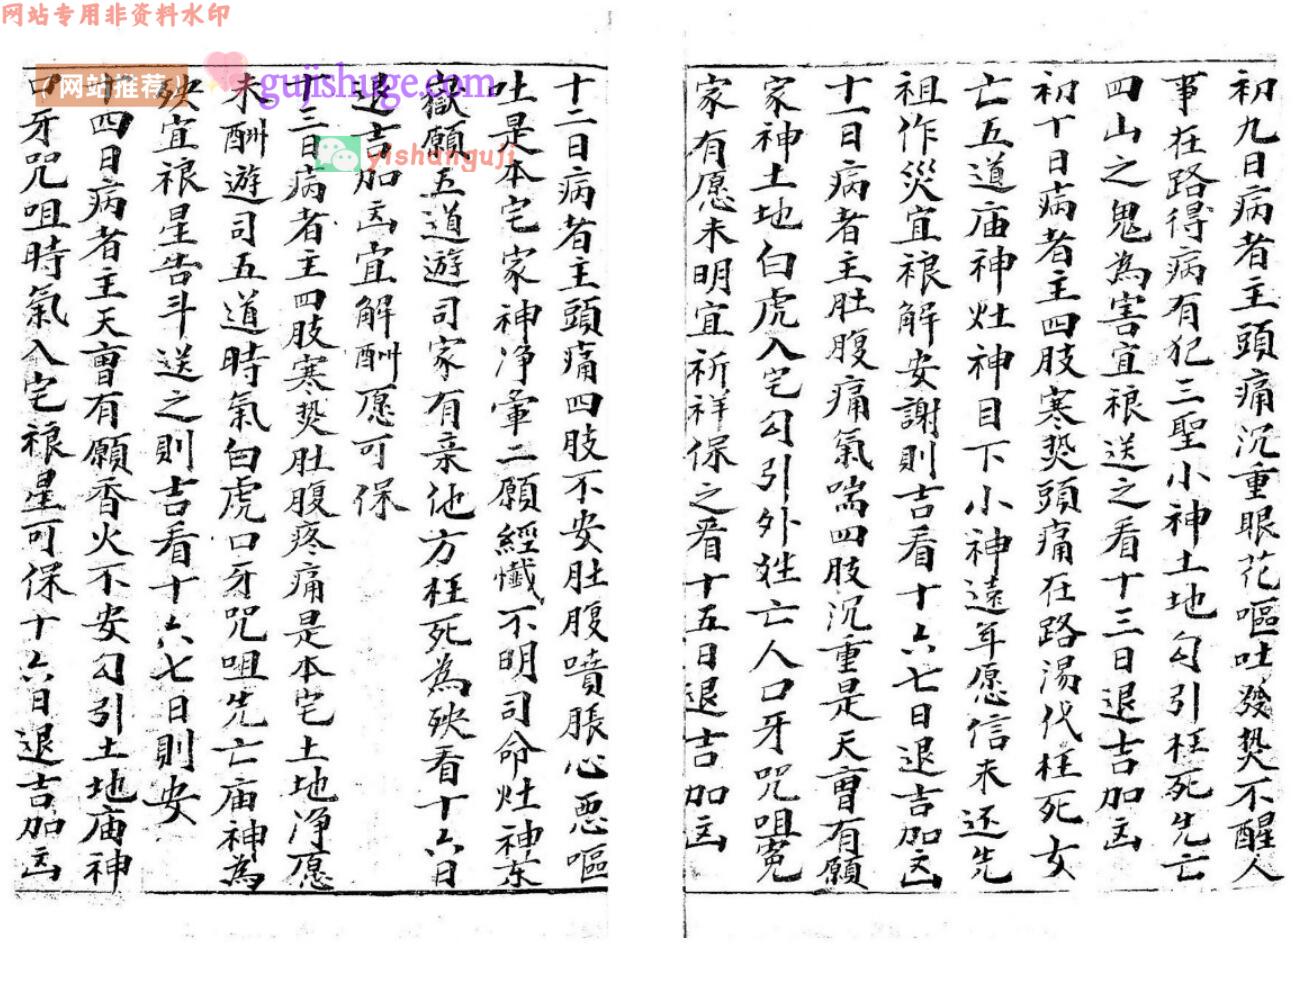 网站专用非资料水印
初九日病者主頭痛沉重眼花嘔吐發熱不醒人
事在路得病有犯三聖小神土地勾引枉死先亡
四山之鬼為害宜禳送之看十三日退吉加凶
初十日病者主四肢寒熱頭痛在路湯伐枉死女
亡五道庙神灶神目下小神遠年愿信未还先
祖作災宜禳解安謝則吉看十六七日退吉加凶
十一日病者主肚腹痛氣喘四肢沉重是天曹有願
家神土地白虎入宅勾引外姓亡人口牙咒咀冤
家有愿未明宜祈祥保之看十五日退吉加凶
十二日病者主頭痛四肢不安肚腹噴脹心恶嘔
吐是本宅家神净荤二願經懺不明司命灶神东
嶽願五道遊司家有亲他方枉死為殃看十六日
退吉加凶宜解酬愿可保
十三日病者主四肢寒熱肚腹疼痛是本宅土地净愿
未酬遊司五道時氣白虎口牙咒咀先亡庙神為
殃宜禳星告斗送之則吉看十六七日則安
十四日病者主天曹有願香火不安勾引土地庙神
口牙咒咀時氣入宅禳星可保十六日退吉加凶
网站推荐
gujishuge.com
yishanguji